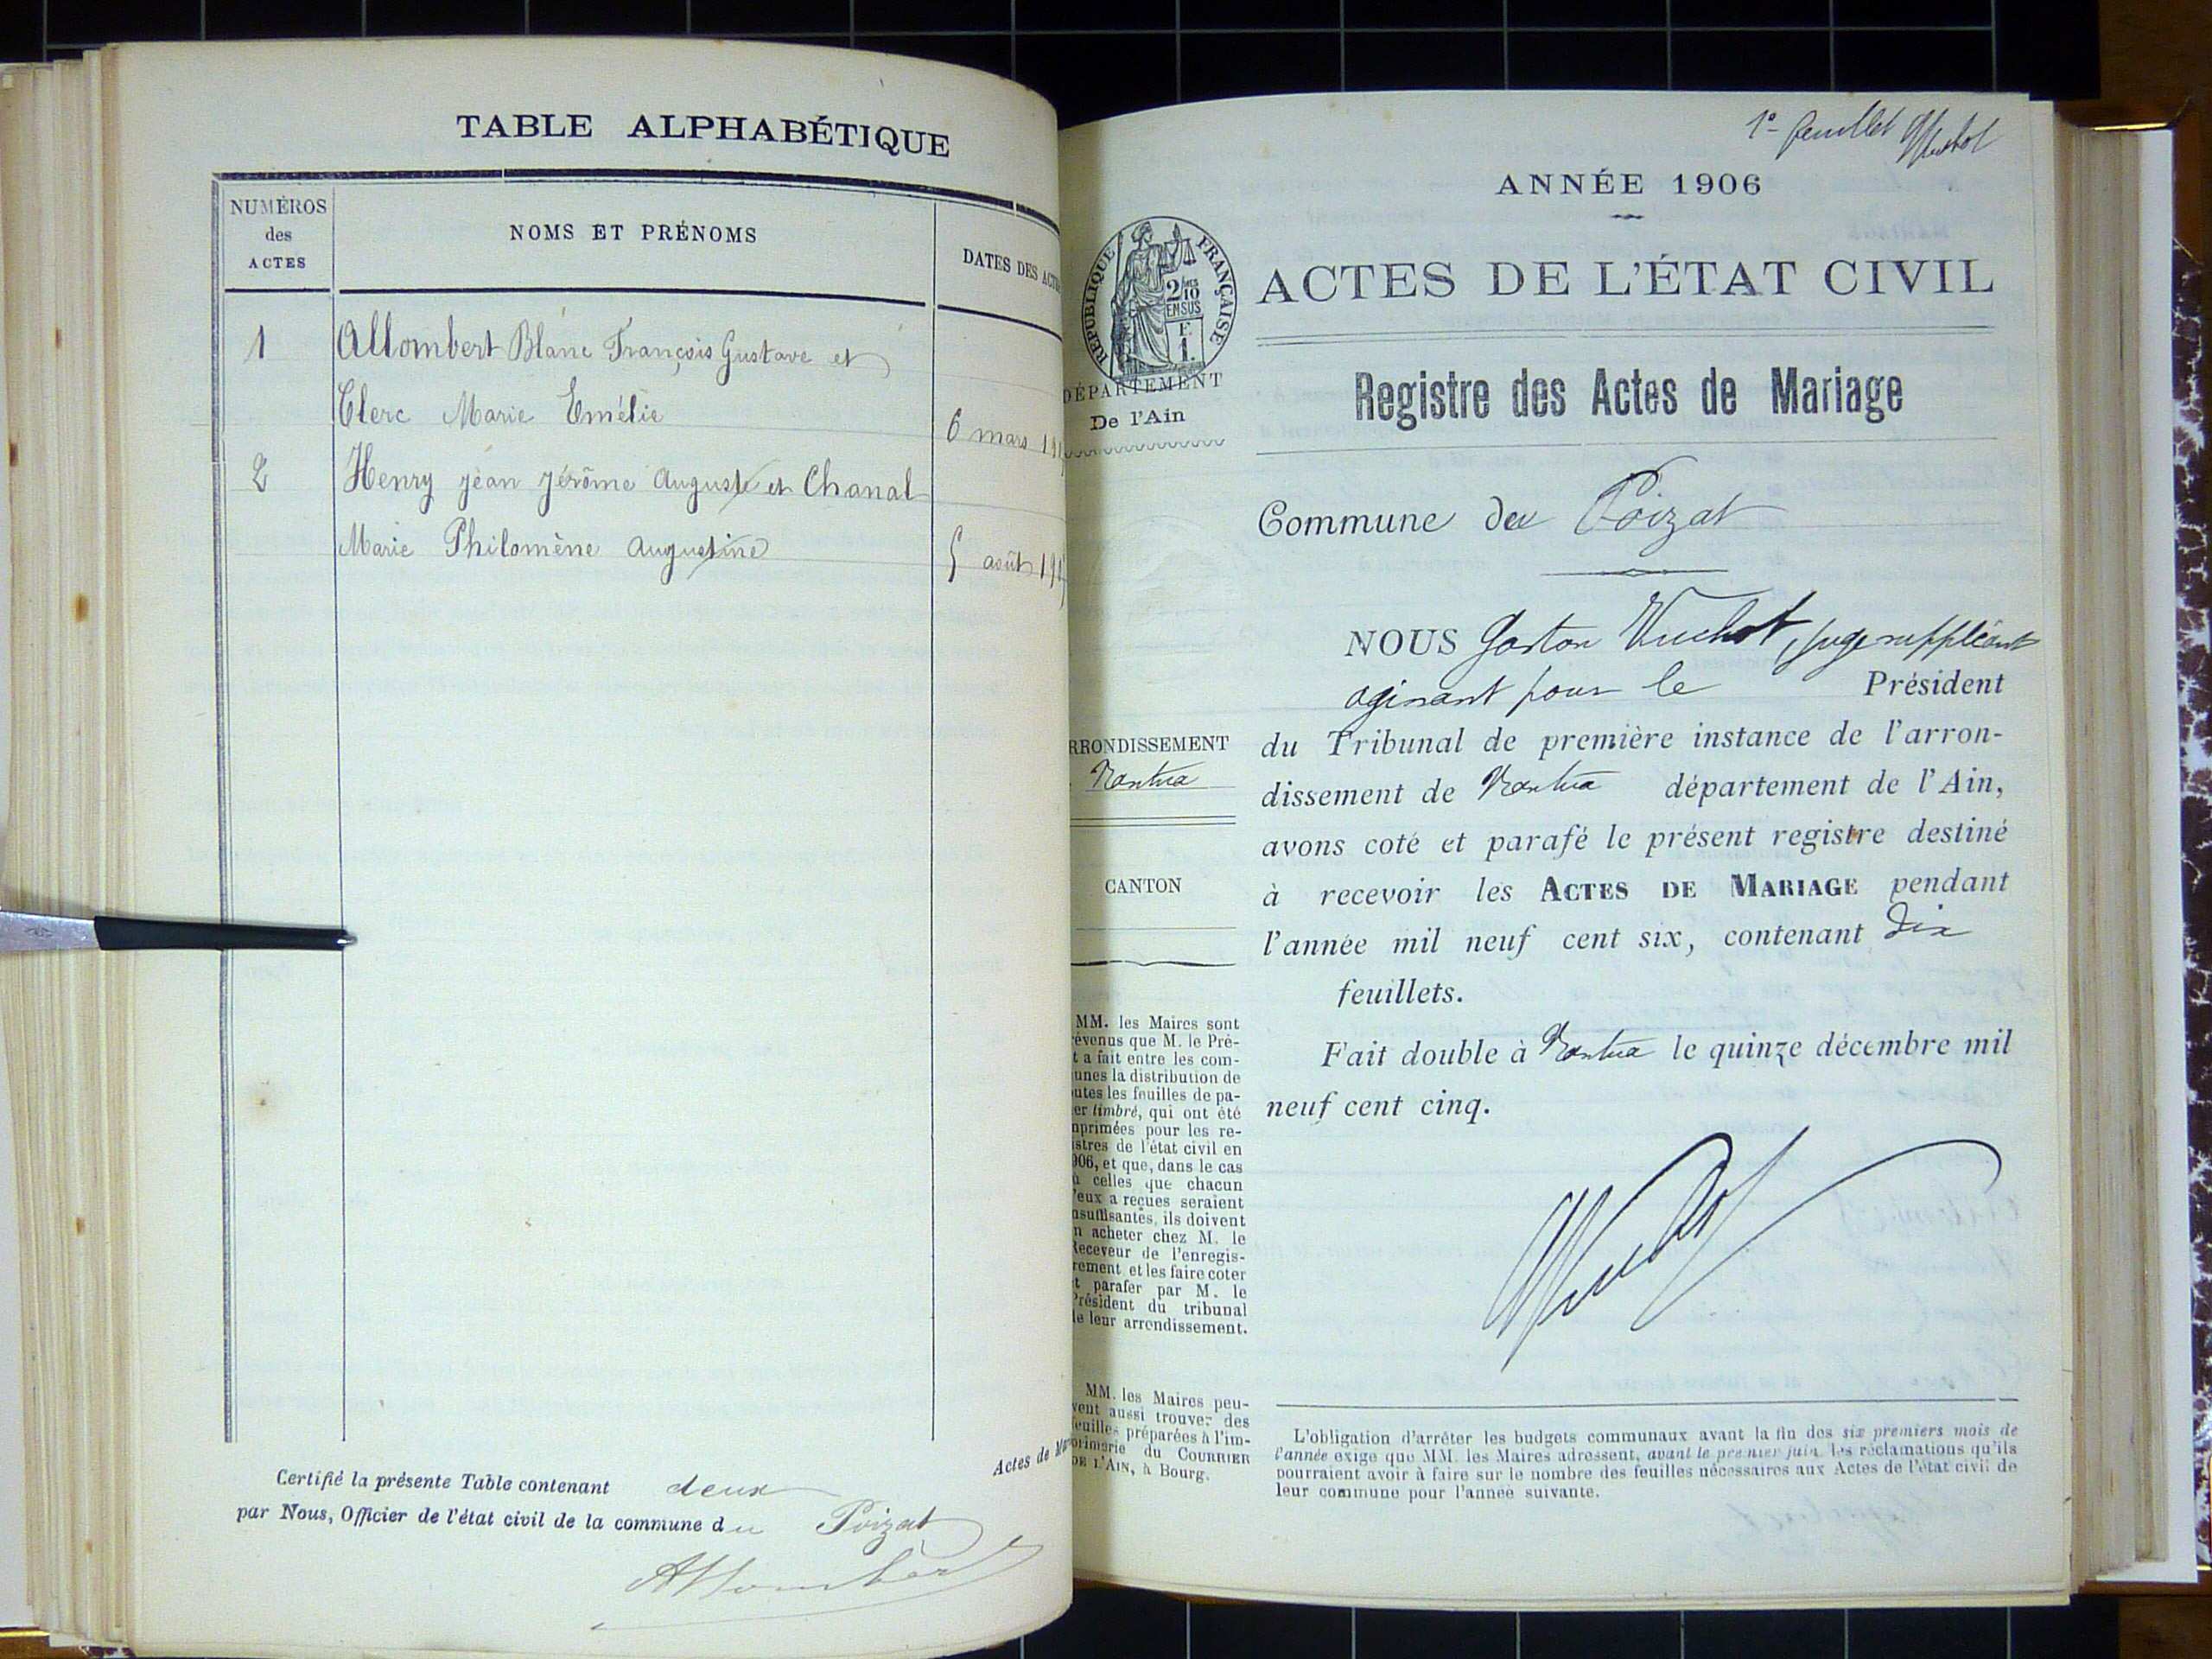 TABLE ALPHABÉTIQUE
NUMÉROS
des
ACTES
NOMS ET PRÉNOMS
DATES DES ACTES
1
Allombert Blanc François Gustave et
Clerc Marie Emélie
6 mars 19
2
Henry jean jérôme Auguste et Chanal
Marie Philomène Augustine
5 août 19
Certifié la présente Table contenant deux
par Nous, Officier de l'état civil de la commune du Poizat
Allombert
Actes de Mar
1er feuillet
ANNÉE 1906
RÉPUBLIQUE FRANÇAISE
2/10
EN SUS
F.
1.
DÉPARTEMENT
De l'Ain
ACTES DE L'ÉTAT CIVIL
Registre des Actes de Mariage
Commune du Poizat
NOUS Gaston Vuchot, juge suppléant
agissant pour le Président
du Tribunal de première instance de l'arron-
dissement de Nantua département de l'Ain,
avons coté et parafé le présent registre destiné
à recevoir les ACTES DE MARIAGE pendant
l'année mil neuf cent six, contenant dix
feuillets.
Fait double à Nantua le quinze décembre mil
neuf cent cinq.
RRONDISSEMENT
Nantua
CANTON
MM. les Maires sont
révenus que M. le Pré-
t a fait entre les com-
unes la distribution de
utes les feuilles de pa-
er timbré, qui ont été
mprimées pour les re-
istres de l'état civil en
906, et que, dans le cas
ù celles que chacun
'eux a reçues seraient
nsuffisantes, ils doivent
n acheter chez M. le
Receveur de l'enregis-
rement et les faire coter
t parafer par M. le
Président du tribunal
de leur arrondissement.
MM. les Maires peu-
vent aussi trouver des
feuilles préparées à l'im-
primerie du COURRIER
DE L'AIN, à Bourg.
L'obligation d'arrêter les budgets communaux avant la fin des six premiers mois de
l'année exige que MM. les Maires adressent, avant le premier juin, les réclamations qu'ils
pourraient avoir à faire sur le nombre des feuilles nécessaires aux Actes de l'état civil de
leur commune pour l'année suivante.